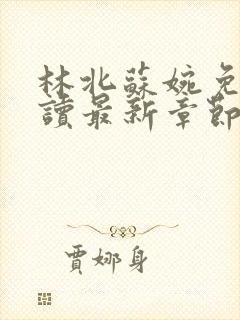 林北蘇婉免
讀最新章節
賈娜身